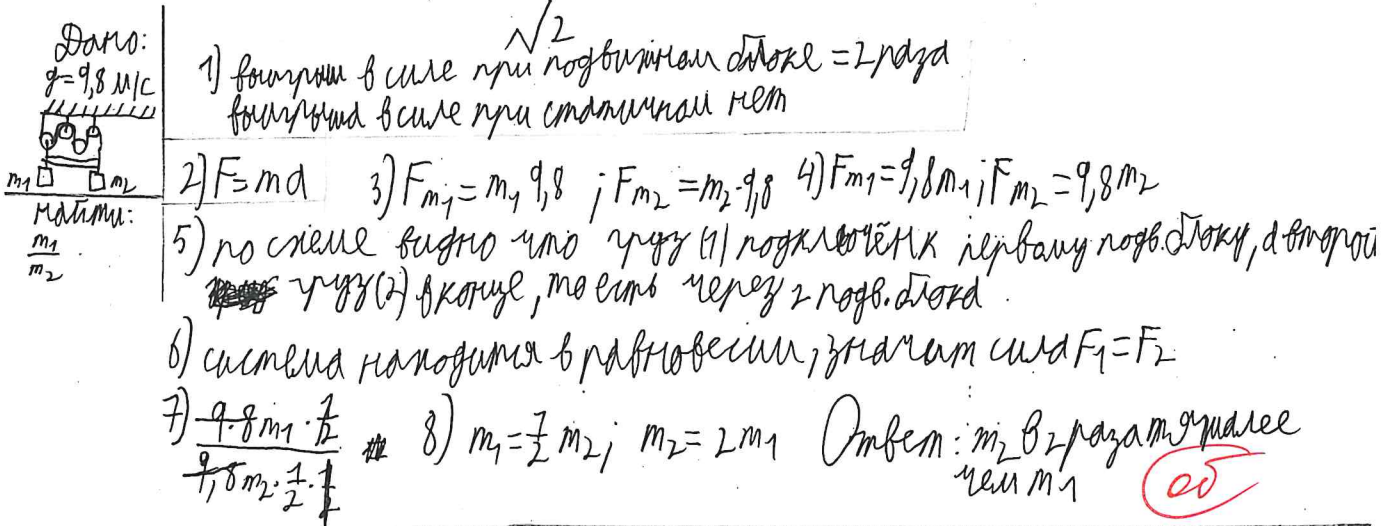 √2
Дано:
g=9,8 м/с
m1 m2
найти:
m1/m2
1) выигрыш в силе при подвижном блоке = 2 раза
выигрыша в силе при статичном нет
2) F=ma 3) Fm1=m1 9,8 ; Fm2=m2·9,8 4) Fm1=9,8m1; Fm2=9,8m2
5) по схеме видно что груз (1) подключён к первому подв. блоку, а второй
груз (2) в конце, то есть через 2 подв. блока.
6) система находится в равновесии, значит сила F1=F2
7) 9.8m1·1/2 / 9,8m2·1/2·1/2 8) m1=1/2 m2; m2=2m1 Ответ: m2 в 2 раза тяжалее
чем m1
об